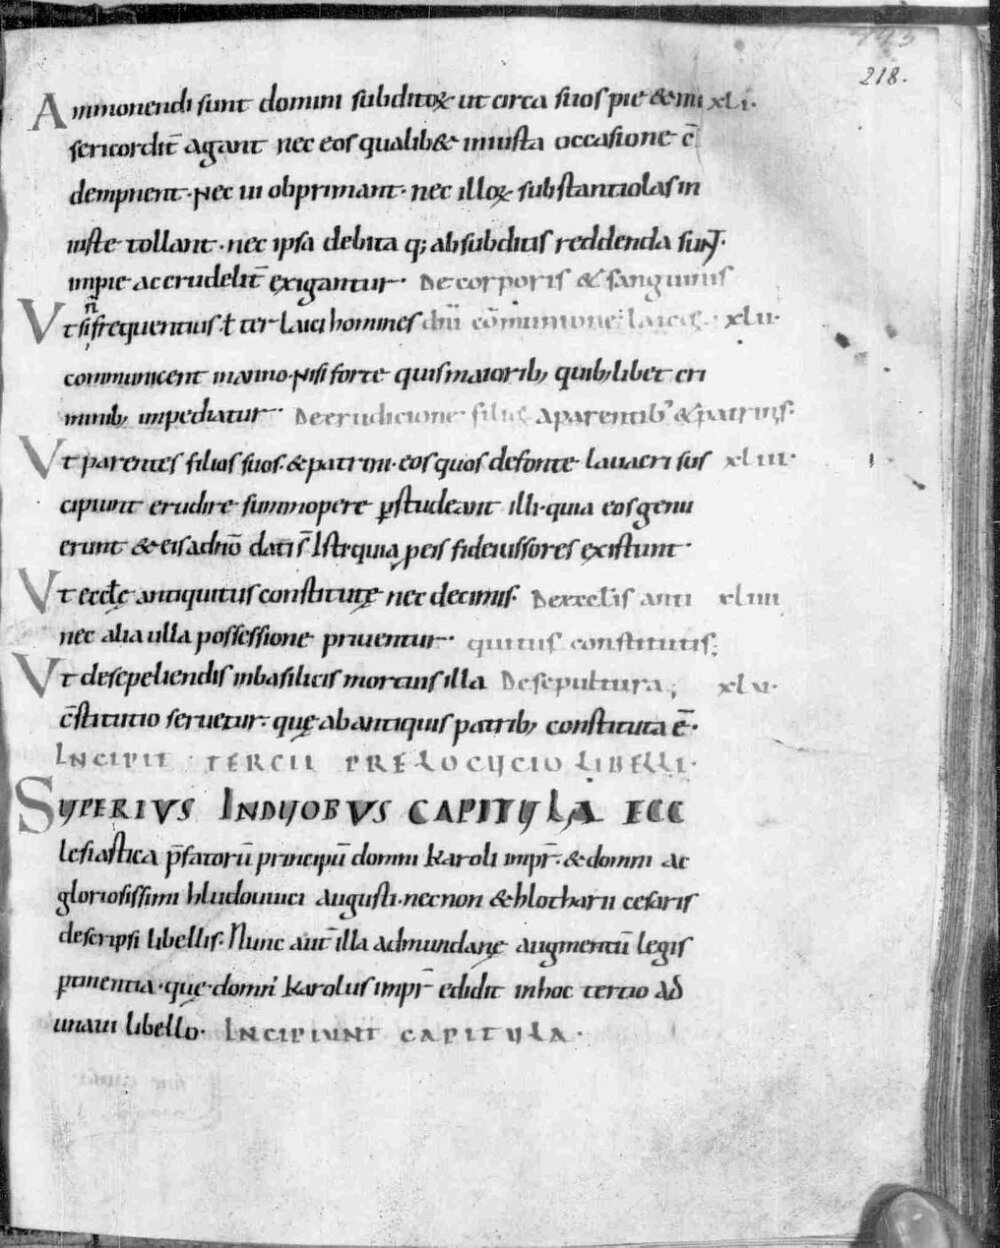 218.
Ammonendi sunt domini subditoꝝ ut circa suos pie & mi xLi.
sericordit̄ agant nec eos qualib& iniusta occasione c̄
dempnent. Nec ui obprimant. nec illoꝝ substantiolas in
iuste tollant. nec ipsa debita q; absubditis reddenda sunt.
impie accrudelit̄ exigantur. De corporis & sanguinis
Vt si ñ frequentius. ł ter laici homines dn̄i cōmunione laicis. xLii.
communicent inanno. Nisi forte quis maiorib; quib;libet cri
minib; impediatur. De erudicione filiis aparentib' & patrinis.
Vt parentes filios suos. & patrini. eos quos defonte lauacri sus xLiii.
cipiunt erudire summopere ꝑstudeant illi. quia eos genu
erunt & eis adn̄o dati s̄ Isti quia ꝓeis fideiussores existunt.
Vt eccłe antiquitus constitute nec decimis. De eccłis anti xLiiii
nec alia ulla possessione priuentur. quitus constitutis;
Vt desepeliendis inbasilicis mortuis illa De sepultura; xLv.
c̄stitutio seruetur. quę ab antiquis patrib; constituta ē.
INCIPIT TERCII PRELOCUCIO LIBELLI.
SUPERIVS INDUOBVS CAPITULA ECC
lesiastica p̄fatorū principū domni karoli impr̄. & domni ac
gloriosissimi hludouuici augusti. necnon & hlotharii cesaris
descripsi libellis. Nunc aut̄ illa admundanę augmentū legis
ꝑtinentia. quę. domn̄ karolus impr̄ edidit inhoc tertio ad
unaui libello. INCIPIUNT CAPITULA.